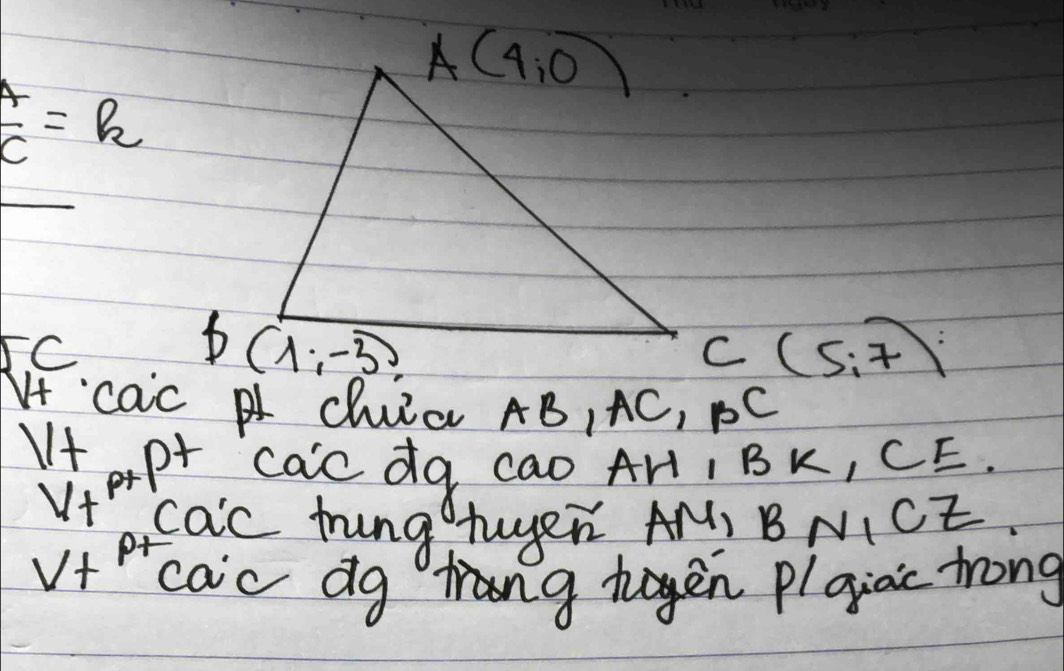 Thứ ngày
A (4;0)
A
C = k
B (1;-3)
C (5;7)
C
Vt các pt chứa AB, AC, BC
Vt pt các đg cao AH, BK, CE.
Vt pt các trung tuyến AM, BN, CZ.
Vt pt các đg p/giác trong